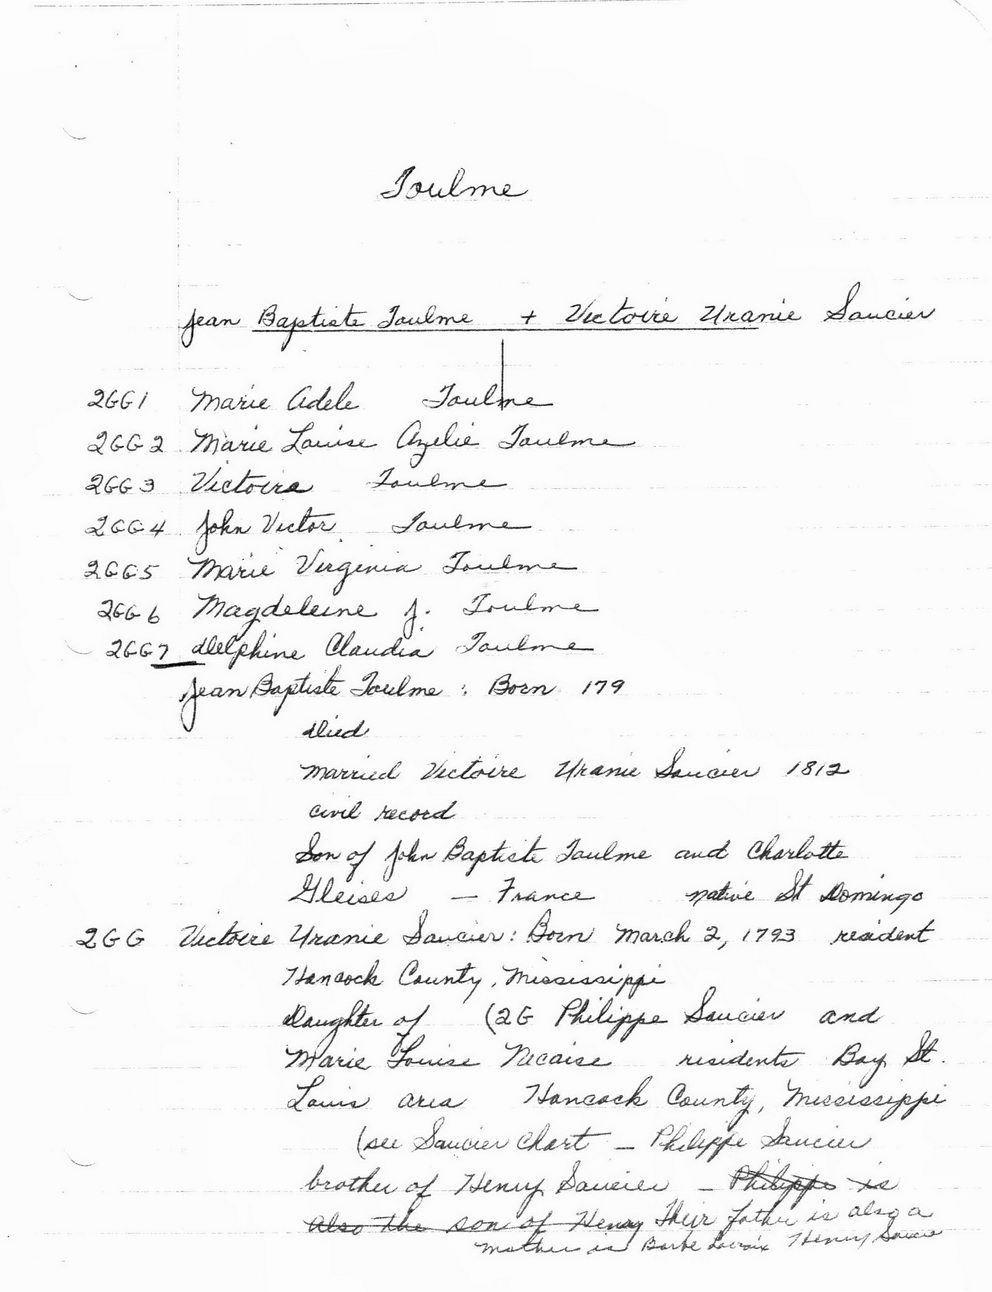 Toulme
Jean Baptiste Toulme + Victoire Uranie Saucier
2GG1 Marie Adele Toulme
2GG2 Marie Louise Azelie Toulme
2GG3 Victoire Toulme
2GG4 John Victor Toulme
2GG5 Marie Virginia Toulme
2GG6 Magdeleine J. Toulme
2GG7 Delphine Claudia Toulme
Jean Baptiste Toulme : Born 179
Died
Married Victoire Uranie Saucier 1812
civil record
Son of John Baptiste Toulme and Charlotte
Gleises — France native St Domingo
2GG Victoire Uranie Saucier: Born March 2, 1793 resident
Hancock County, Mississippi
Daughter of (2G Philippe Saucier and
Marie Louise Necaise residents Bay St.
Louis area Hancock County, Mississippi
(see Saucier Chart — Philippe Saucier
brother of Henry Saucier — Philippe is
Also the son of Henry Their father is also a
Mother is Barbe Lacroix Henry Saucie